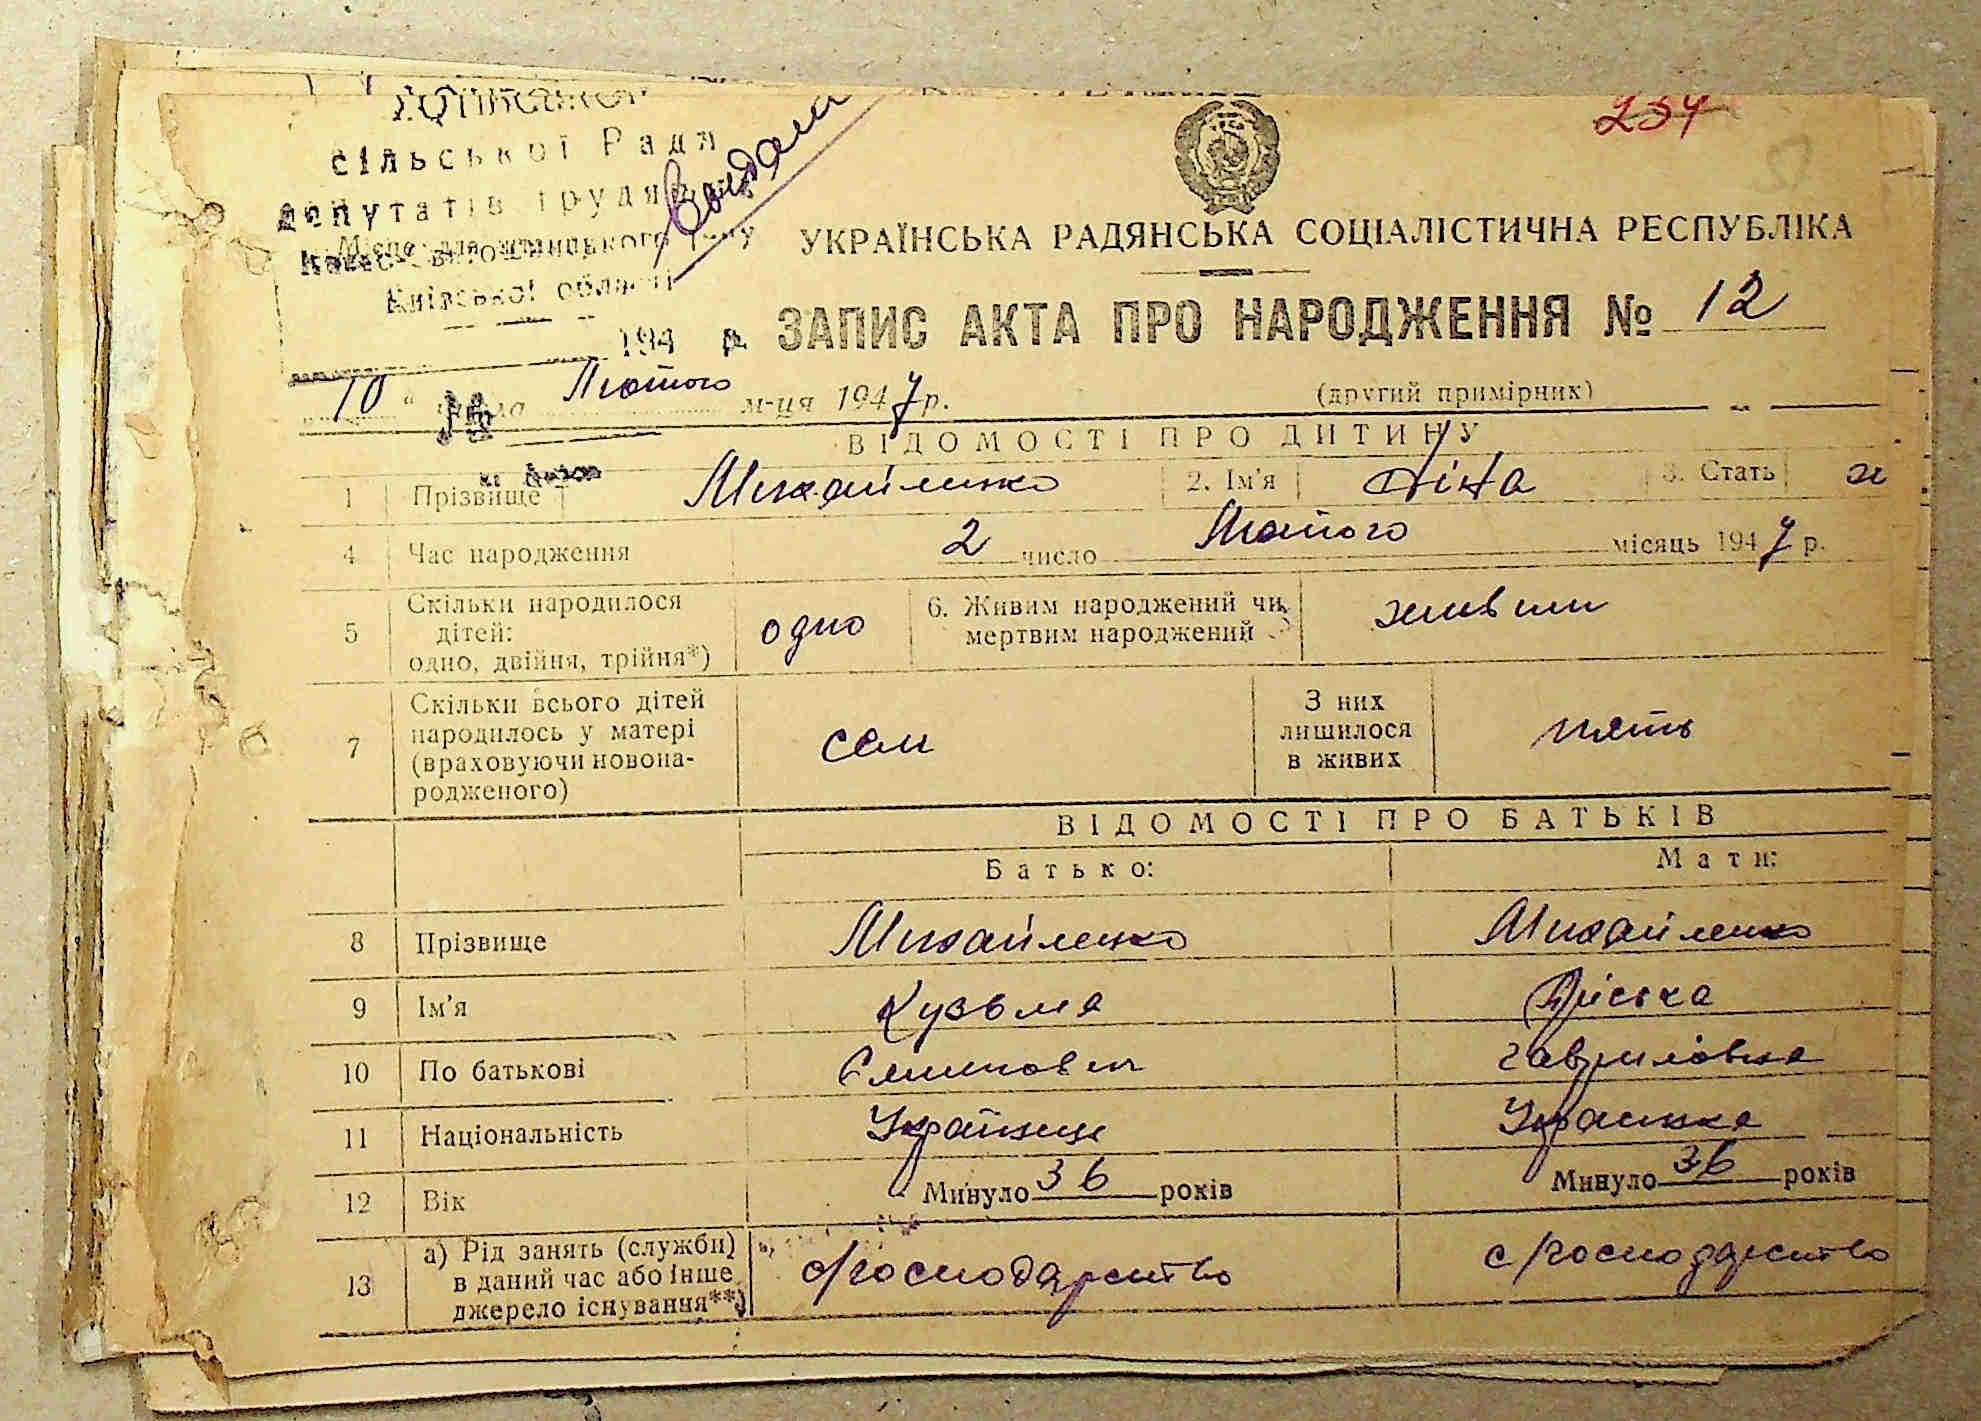 234
сільської Ради
депутатів трудящ
Місце для штампу
Київської області
194 р.
УКРАЇНСЬКА РАДЯНСЬКА СОЦІАЛІСТИЧНА РЕСПУБЛІКА
ЗАПИС АКТА ПРО НАРОДЖЕННЯ № 12
10 " числа Лютого м-ця 1947 р.
(другий примірник)
ВІДОМОСТІ ПРО ДИТИНУ
1 Прізвище Михайленко 2. Ім'я Ніна 3. Стать ж
4 Час народження 2 число Лютого місяць 1947 р.
5 Скільки народилося дітей: одно, двійня, трійня*) одно 6. Живим народжений чи мертвим народжений живим
7 Скільки всього дітей народилось у матері (враховуючи новонародженого) сем З них лишилося в живих пять
ВІДОМОСТІ ПРО БАТЬКІВ
Батько: Мати:
8 Прізвище Михайленко Михайленко
9 Ім'я Кузьма Пріська
10 По батькові Гавриловна
11 Національність Українець Украинка
12 Вік Минуло 36 років Минуло 36 років
13 а) Рід занять (служби) в даний час або інше джерело існування**) с/господарство с/господарство